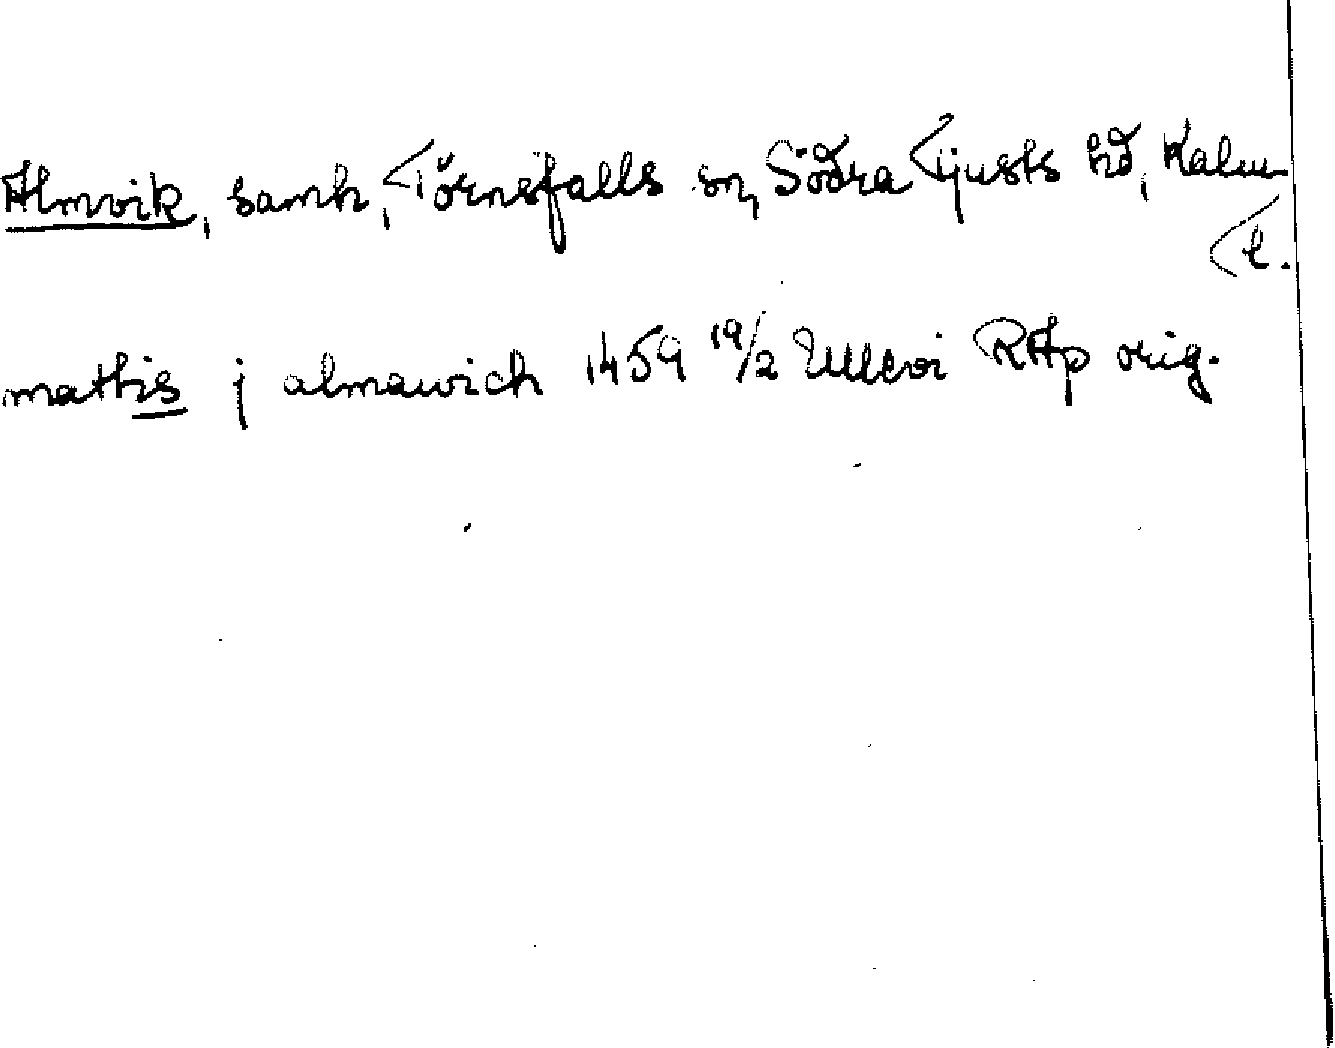 Almvik, samh, Törnsfalls sn, Södra Tjusts hd, Kalm
l.
mathis j almawich 1459 19/2 Ullevi RAp orig.